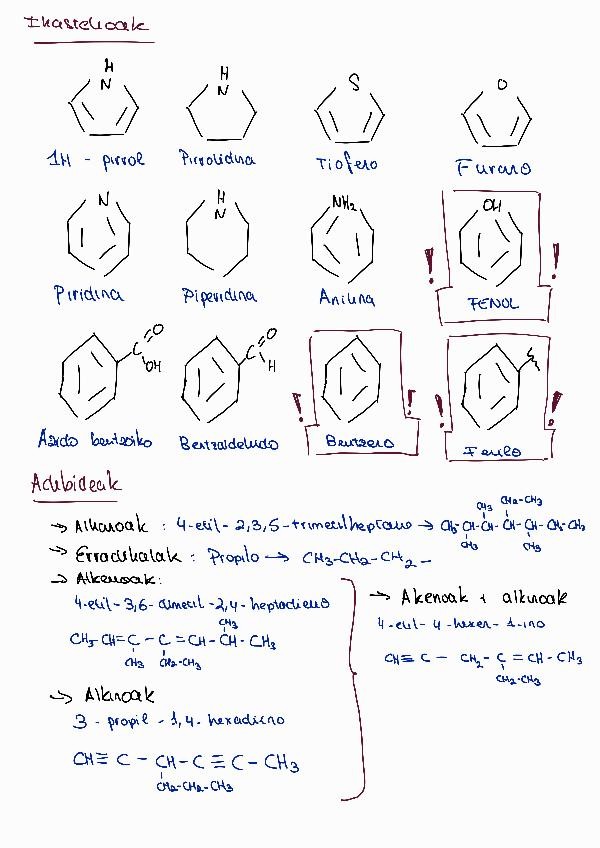 Ikastekoak
H
N
H
N
S
O
1H - pirrol Pirrolidina Tiofeno Furano
N
H
N
NH2
OH
Piridina Piperidina Anilina ! FENOL !
C=O
OH
C=O
H
Azido bentzoiko Bentzaldehido ! Bentzeno ! ! Fenilo !
Adibideak
→ Alkanoak : 4-etil-2,3,5-trimetilheptano → CH3-CH-CH-CH-CH-CH2-CH3
CH3 CH2-CH3
CH3 CH3
→ Erradikalak : Propilo → CH3-CH2-CH2-
→ Alkenoak:
4-etil-3,6-dimetil-2,4-heptadieno
CH3
CH3-CH=C-C=CH-CH-CH3
CH3 CH2-CH3
→ Alkinoak
3-propil-1,4-hexadiino
CH≡C-CH-C≡C-CH3
CH2-CH2-CH3
→ Akenoak + alkinoak
4-etil-4-hexen-1-ino
CH≡C-CH2-C=CH-CH3
CH2-CH3